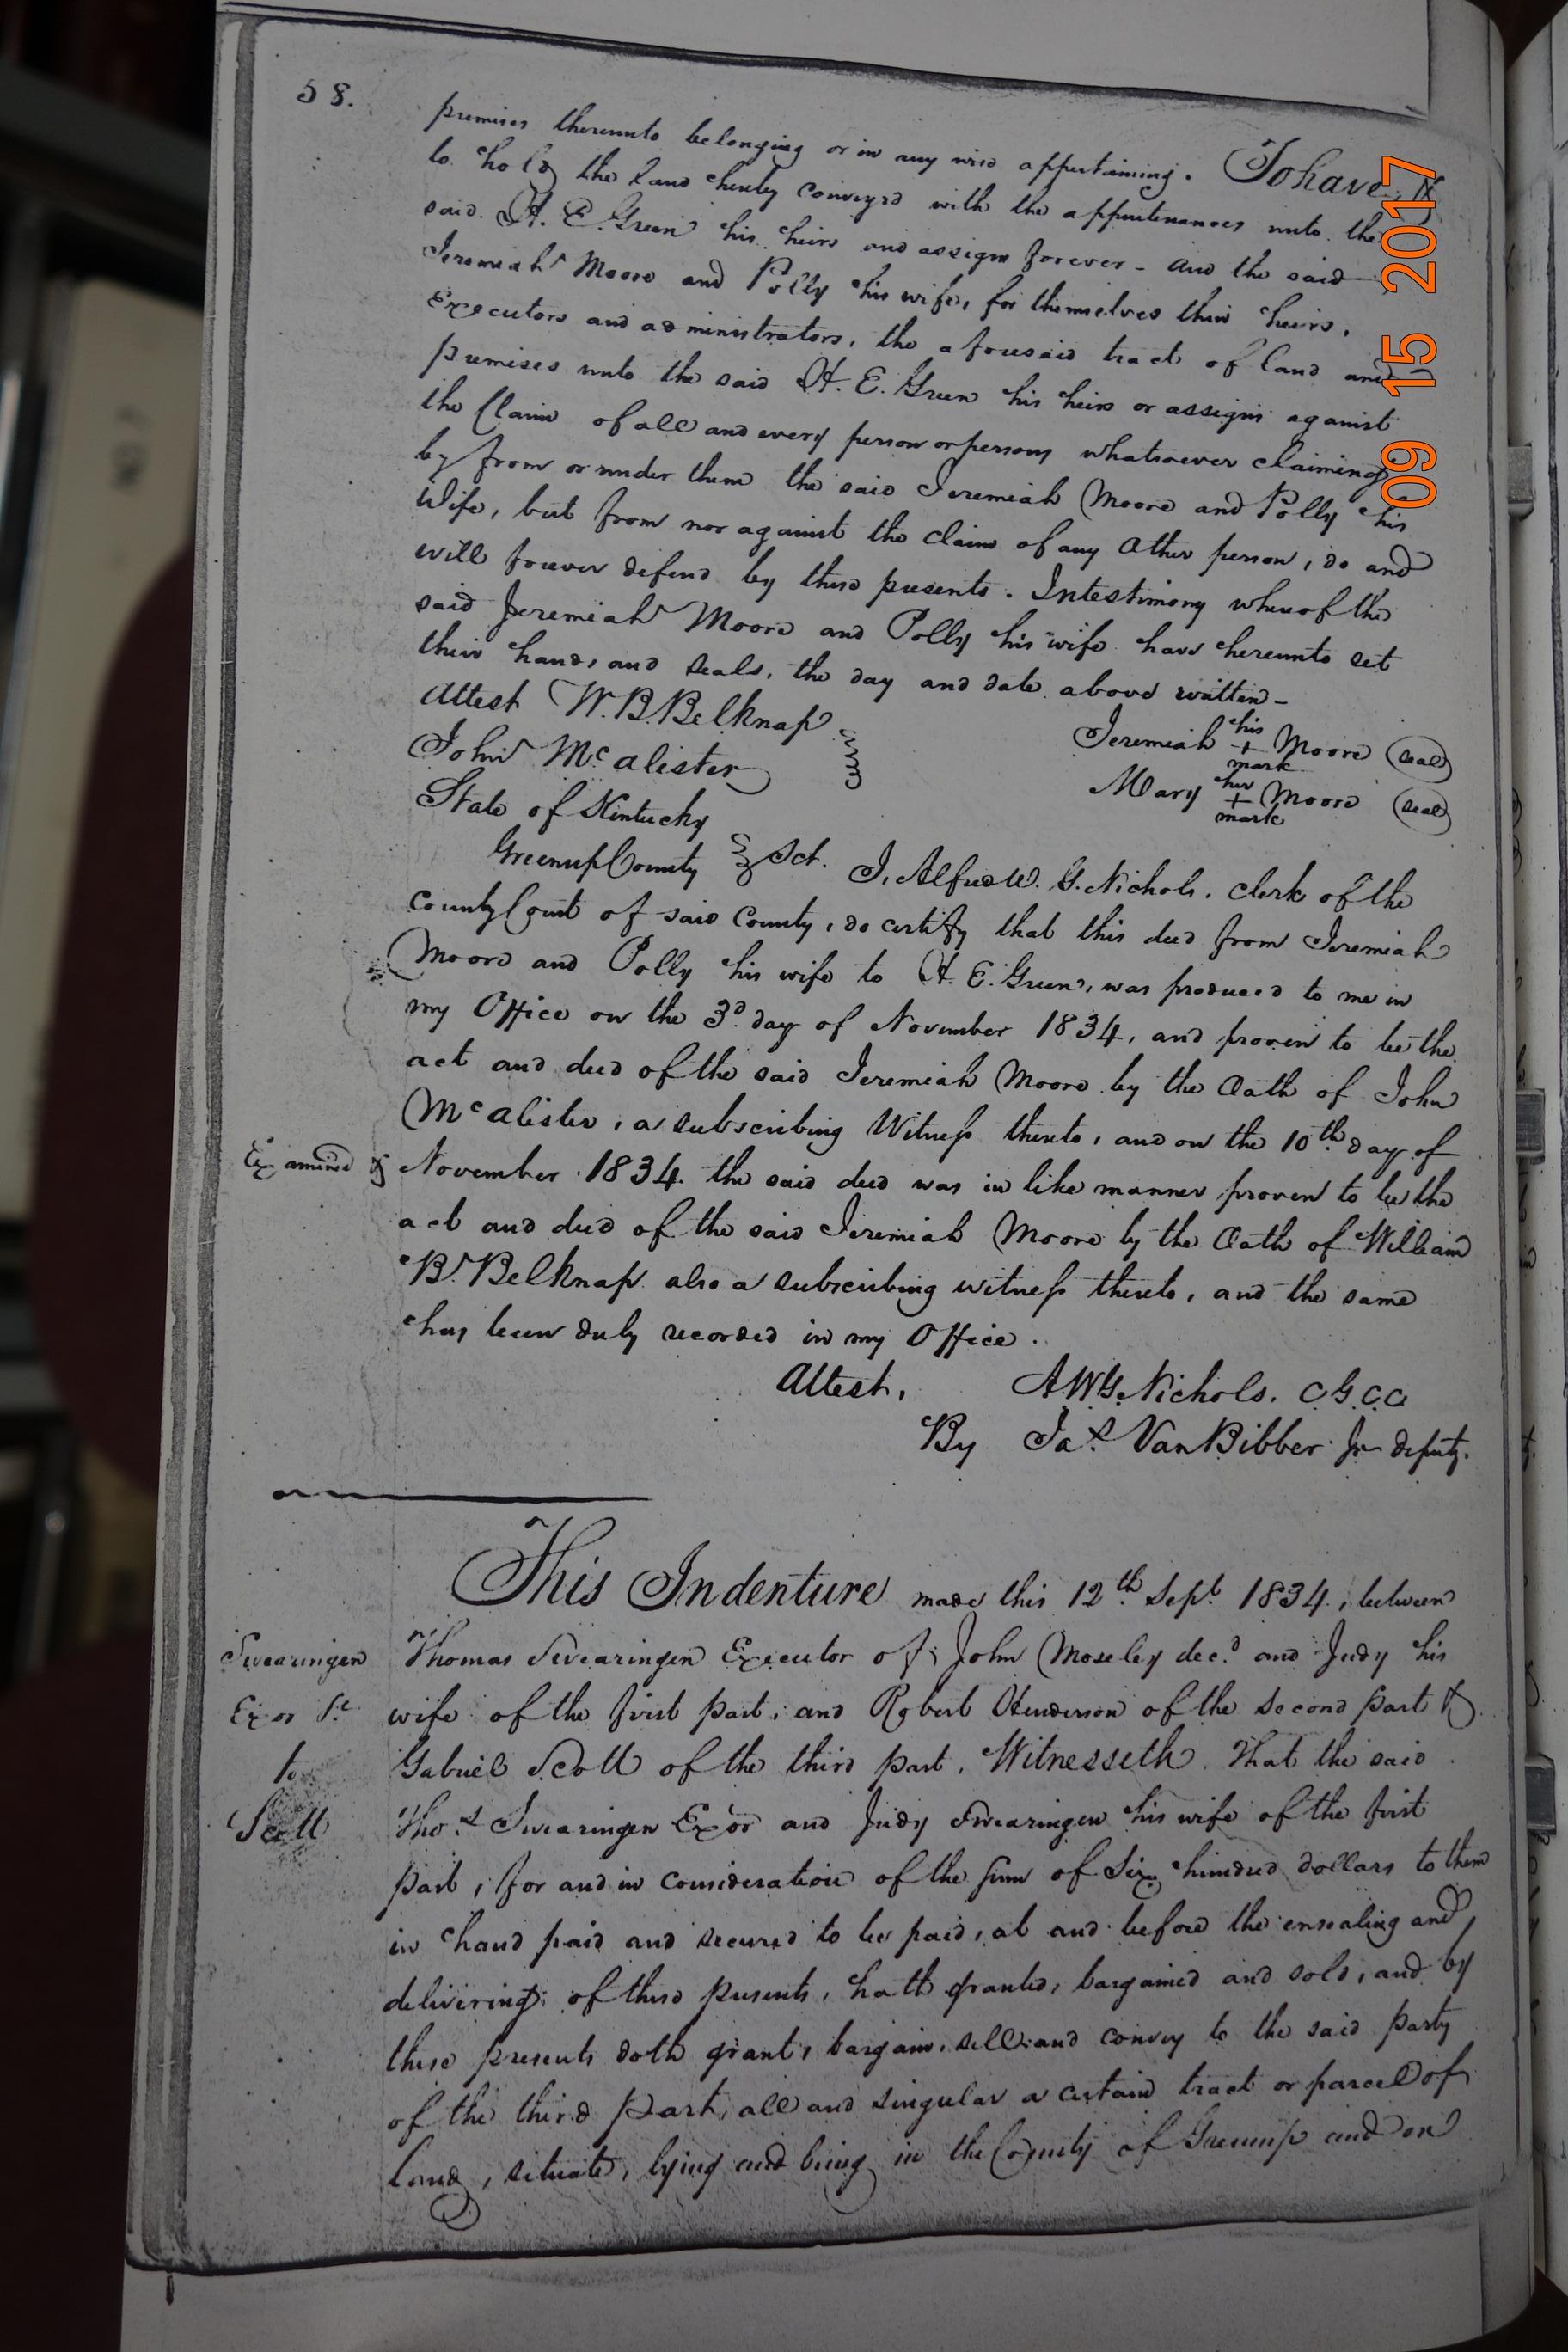 58.
premises thereunto belonging or in any wise appertaining. To have &
to hold the land hereby conveyed with the appurtenances unto the
said H. E. Green his heirs and assigns forever - and the said
Jeremiah Moore and Polly his wife, for themselves their heirs,
Executors and administrators, the aforesaid tract of land and
premises unto the said H. E. Green his heirs or assigns against
the Claim of all and every person or persons whatsoever claiming
by from or under them the said Jeremiah Moore and Polly his
Wife, but from nor against the claim of any other person, do and
will forever defend by these presents. In testimony whereof the
said Jeremiah Moore and Polly his wife have hereunto set
their hands and seals, the day and date above written -
Attest W. B. Belknap
John McAlister
Jeremiah his + mark Moore (seal)
Mary her + mark Moore (seal)
State of Kentucky
Greenup County Sct. I, Alfred W. G. Nichols, Clerk of the
County Court of said County, do certify that this deed from Jeremiah
Moore and Polly his wife to H. E. Green, was produced to me in
my Office on the 3d. day of November 1834, and proven to be the
act and deed of the said Jeremiah Moore by the Oath of John
McAlister, a subscribing Witness thereto, and on the 10th day of
Examined &
November 1834. the said deed was in like manner proven to be the
act and deed of the said Jeremiah Moore by the Oath of William
B. Belknap also a subscribing witness thereto, and the same
has been duly recorded in my Office.
Attest, A W G. Nichols. C.G.C.C
By Jas. VanBibber Jr deputy.
This Indenture made this 12th. Sept. 1834, between
Swearingen
Thomas Swearingen Executor of John Moseley decd. and Judy his
Exor &c
wife of the first part, and Robert Henderson of the second part &
to
Gabriel Scott of the third part. Witnesseth. That the said
Scott
Thos. Swearingen Exor and Judy Swearingen his wife of the first
part, for and in consideration of the sum of Six hundred dollars to them
in hand paid and secured to be paid, at and before the ensealing and
delivering of these presents, hath granted, bargained and sold, and by
these presents doth grant, bargain, sell and convey to the said party
of the third part, all and singular a certain tract or parcel of
land, situate, lying and being in the County of Greenup and on
09 15 2017